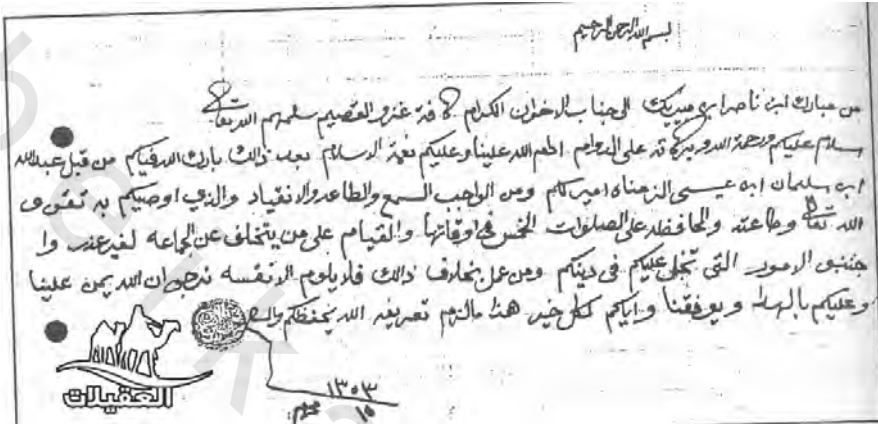 بسم الله الرحمن الرحيم
من مبارك ابن ناصر ابن مبيريك الى جناب الاخوان الكرام كافة غزو القصيم سلمهم الله تعالى
سلام عليكم ورحمة الله وبركاته على الدوام اطعم الله علينا وعليكم نعمة الاسلام بعد ذالك بارك الله فيكم من قبل عبدالله
ابن سليمان ابن عيسى الزمناه امير لكم ومن الواجب السمع والطاعه والانقياد والذي اوصيكم به تقوى
الله تعالى وطاعته والمحافظه على الصلوات الخمس في اوقاتها والقيام على من يتخلف عن الجماعه لغير عذر وا
جتنبو الامور التي تخل عليكم في دينكم ومن عمل بخلاف ذالك فلا يلوم الا نفسه نرجو ان الله يمن علينا
وعليكم بالهدا ويوفقنا واياكم لكل خير هذا مالزم تعريفه الله يحفظكم والسلام
١٣٠٣
١٥
محرم
العقيلات